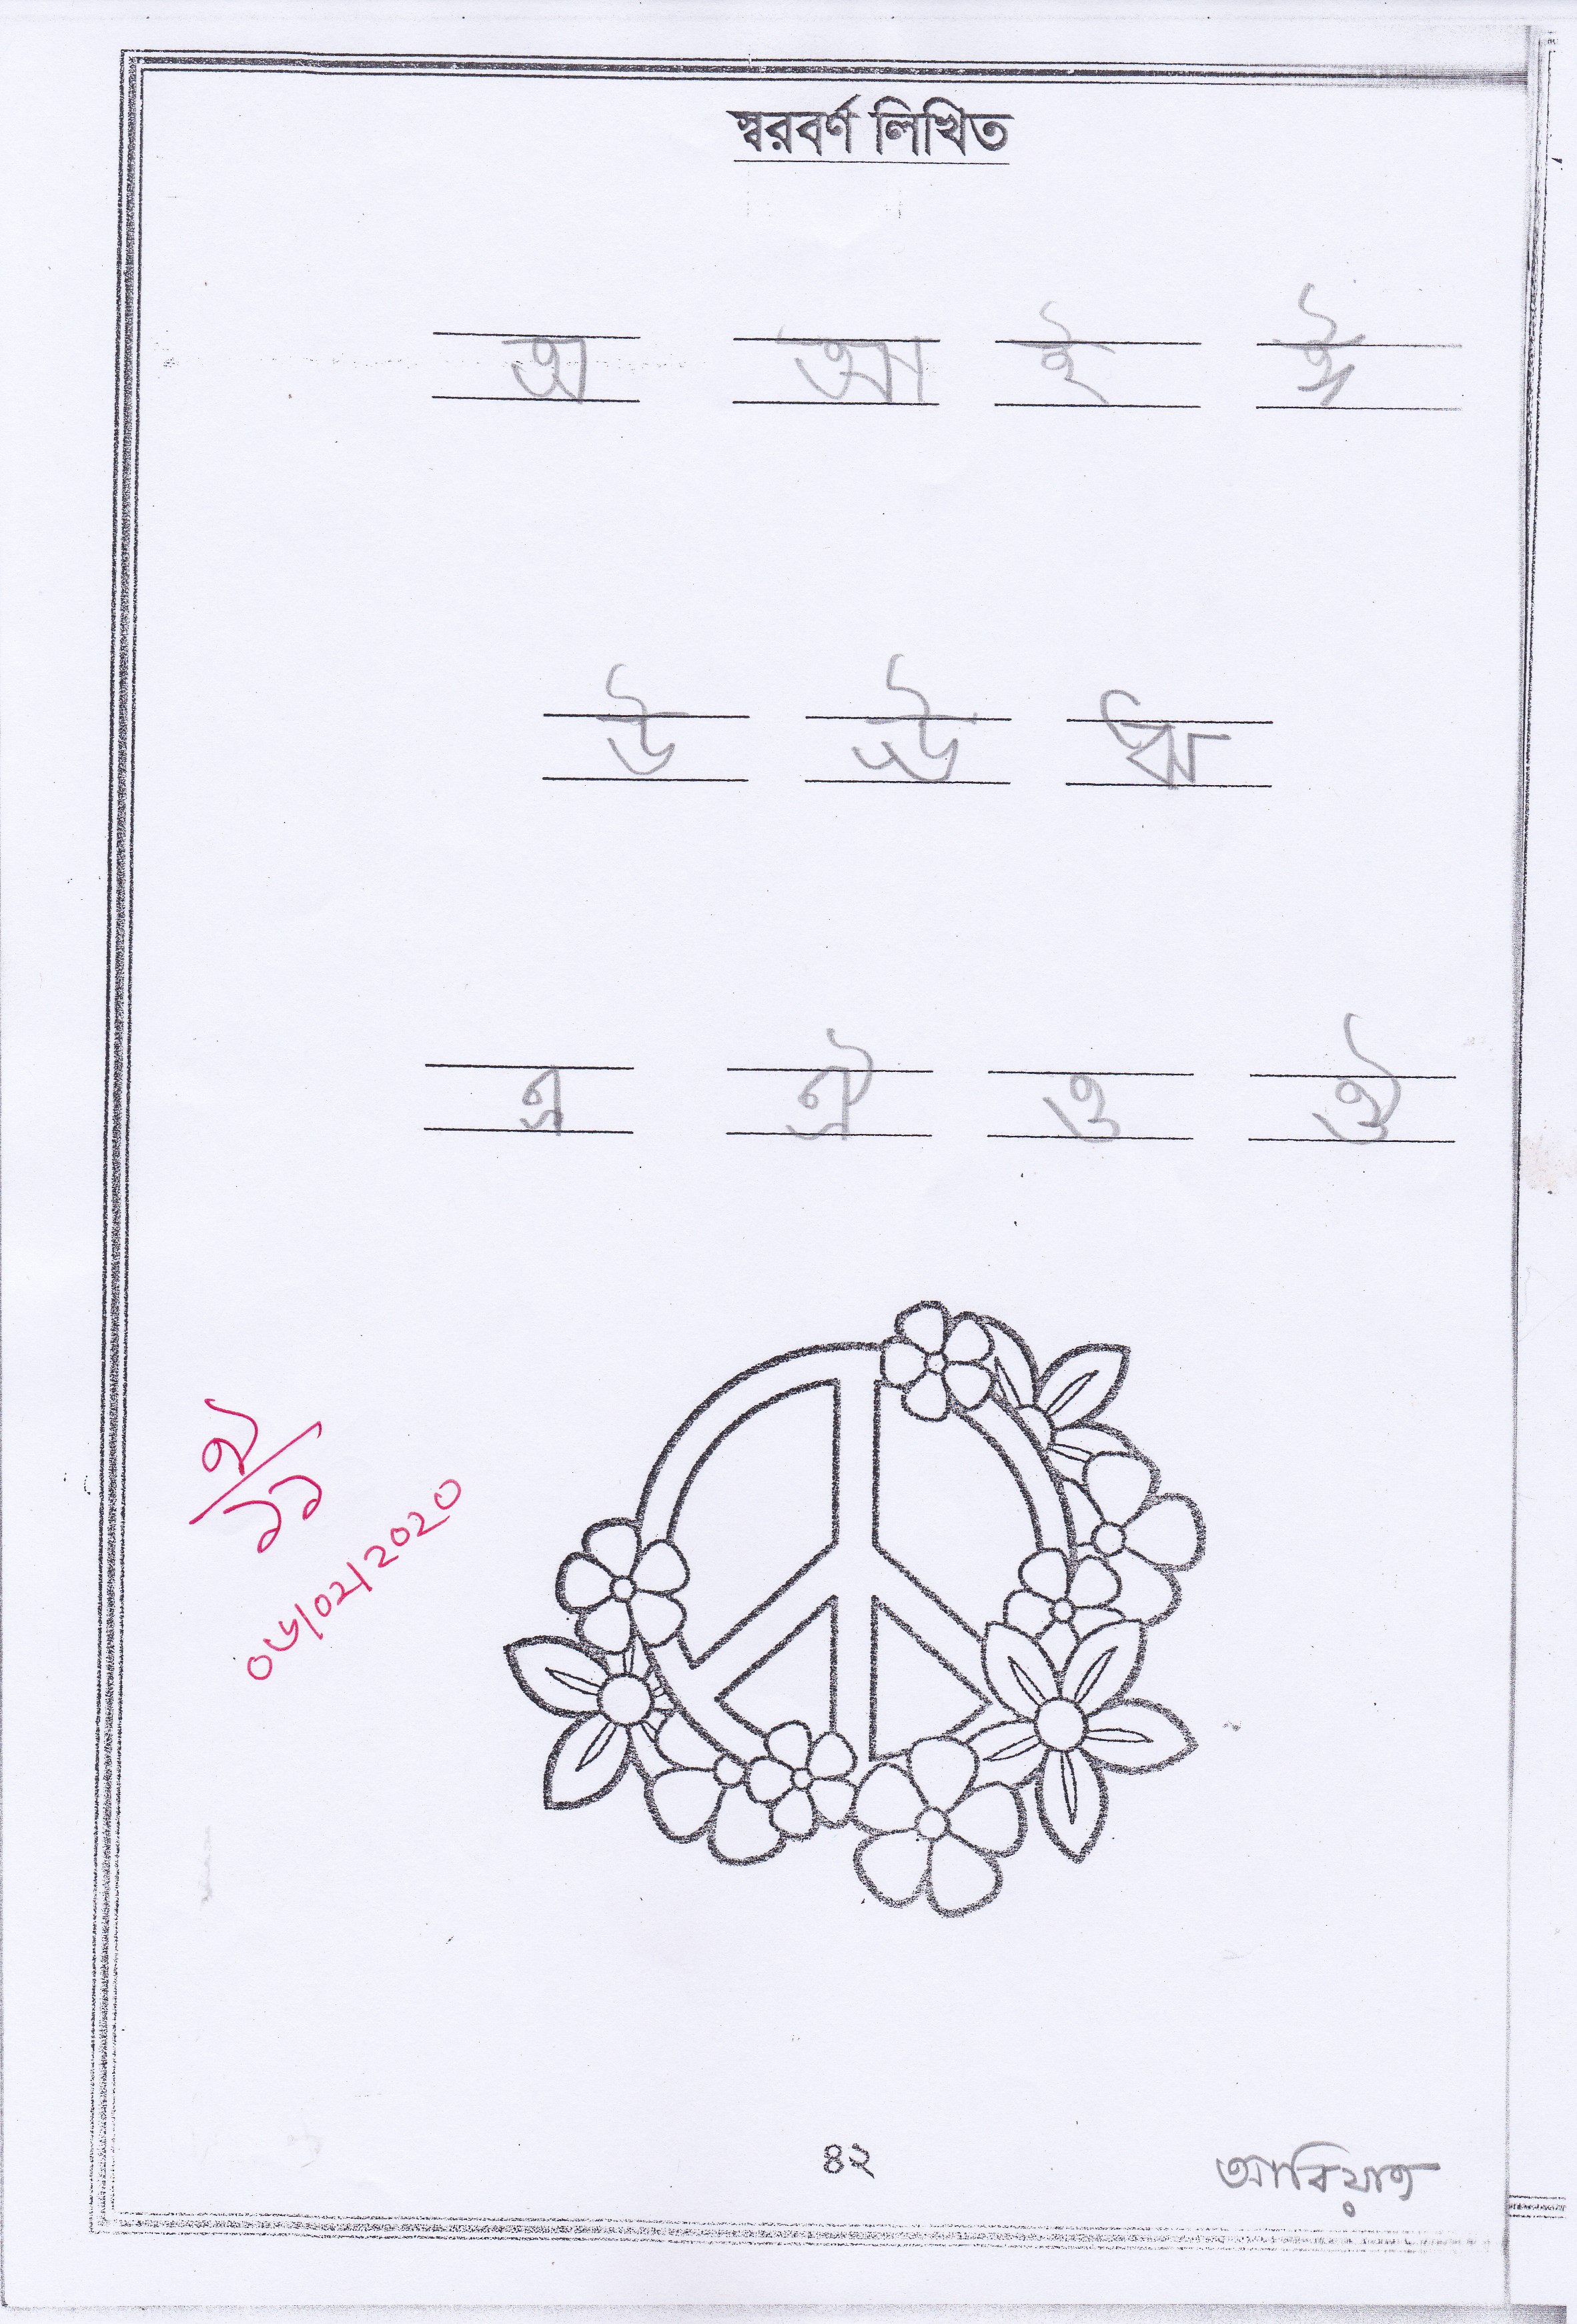 স্বরবর্ণ লিখিত
অ আ ই ঈ
উ ঊ ঋ
এ ঐ ও ঔ
১১
০৬/০২/২০২০
৪২
আরিয়াত